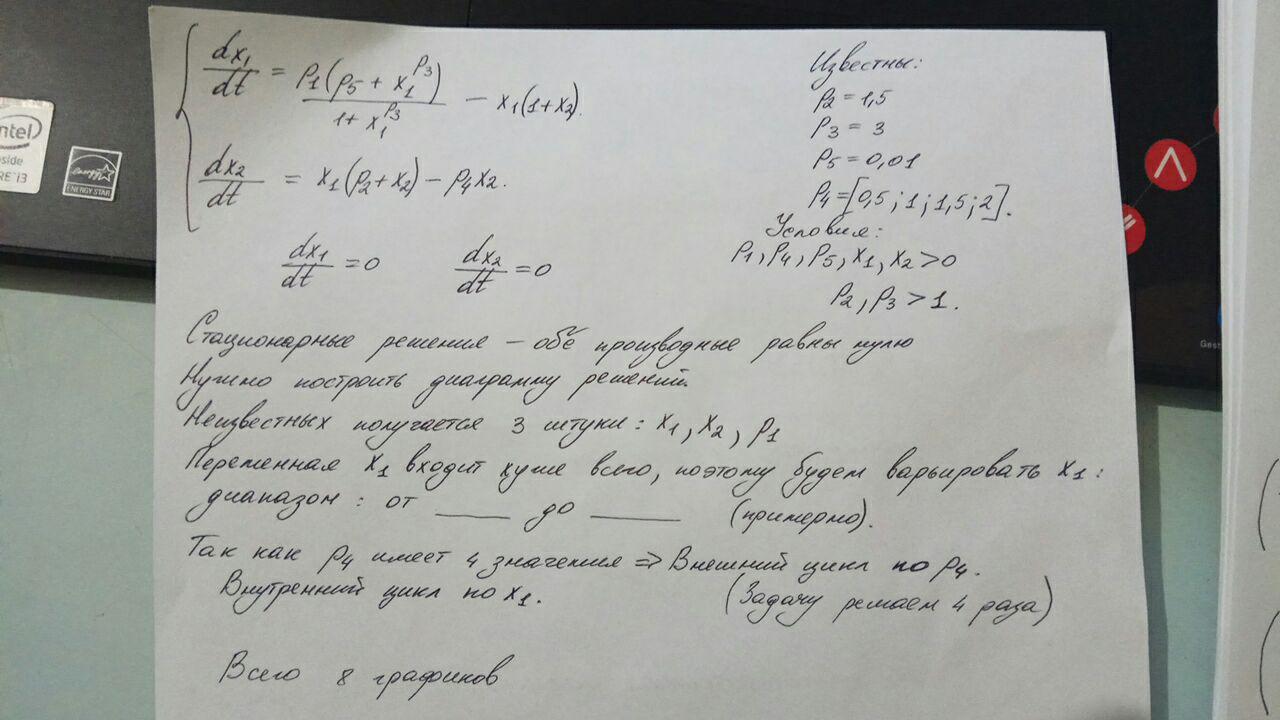 dx₁/dt = P1(P5 + x₁^P3)/(1 + x₁^P3) − x₁(1+x₂).
dx₂/dt = x₁(P2 + x₂) − P4x₂.
dx₁/dt = 0 dx₂/dt = 0
Известны:
P2 = 1,5
P3 = 3
P5 = 0,01
P4 = [0,5 ; 1 ; 1,5 ; 2].
Условия:
P1, P4, P5, x1, x2 > 0
P2, P3 > 1.
Стационарные решения – обе производные равны нулю
Нужно построить диаграмму решений.
Неизвестных получается 3 штуки: x1, x2, P1
Переменная x1 входит хуже всего, поэтому будем варьировать x1:
диапазон: от ____ до ____ (примерно).
Так как P4 имеет 4 значения ⇒ Внешний цикл по P4.
Внутренний цикл по x1. (Задачу решаем 4 раза)
Всего 8 графиков
intel
side
RE™i3
energy
ENERGY STAR
Gest